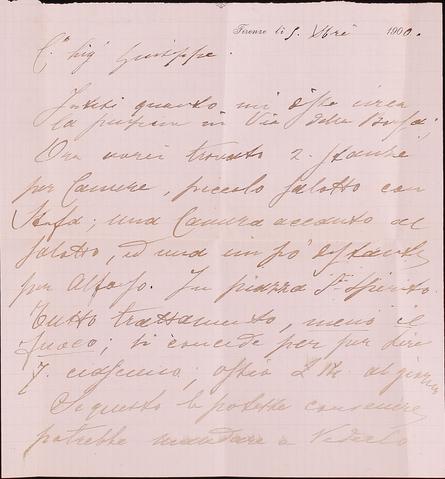 Firenze li 9. Xbre 1900.
C. Sig. Giuseppe.
Intesi quanto mi circa
la in Via della
Ora avrei trovato 2. Stanze
per Camere, piccolo salotto con
Stufa; una Camera accanto al
salotto, ed una un po' distante
per Alfonso. In piazza S. Spirito.
Tutto trattamento, meno il
fuoco; si concede per
7. ciascuno, al giorno
Se questo le potesse convenire
potrebbe mandare a vederlo